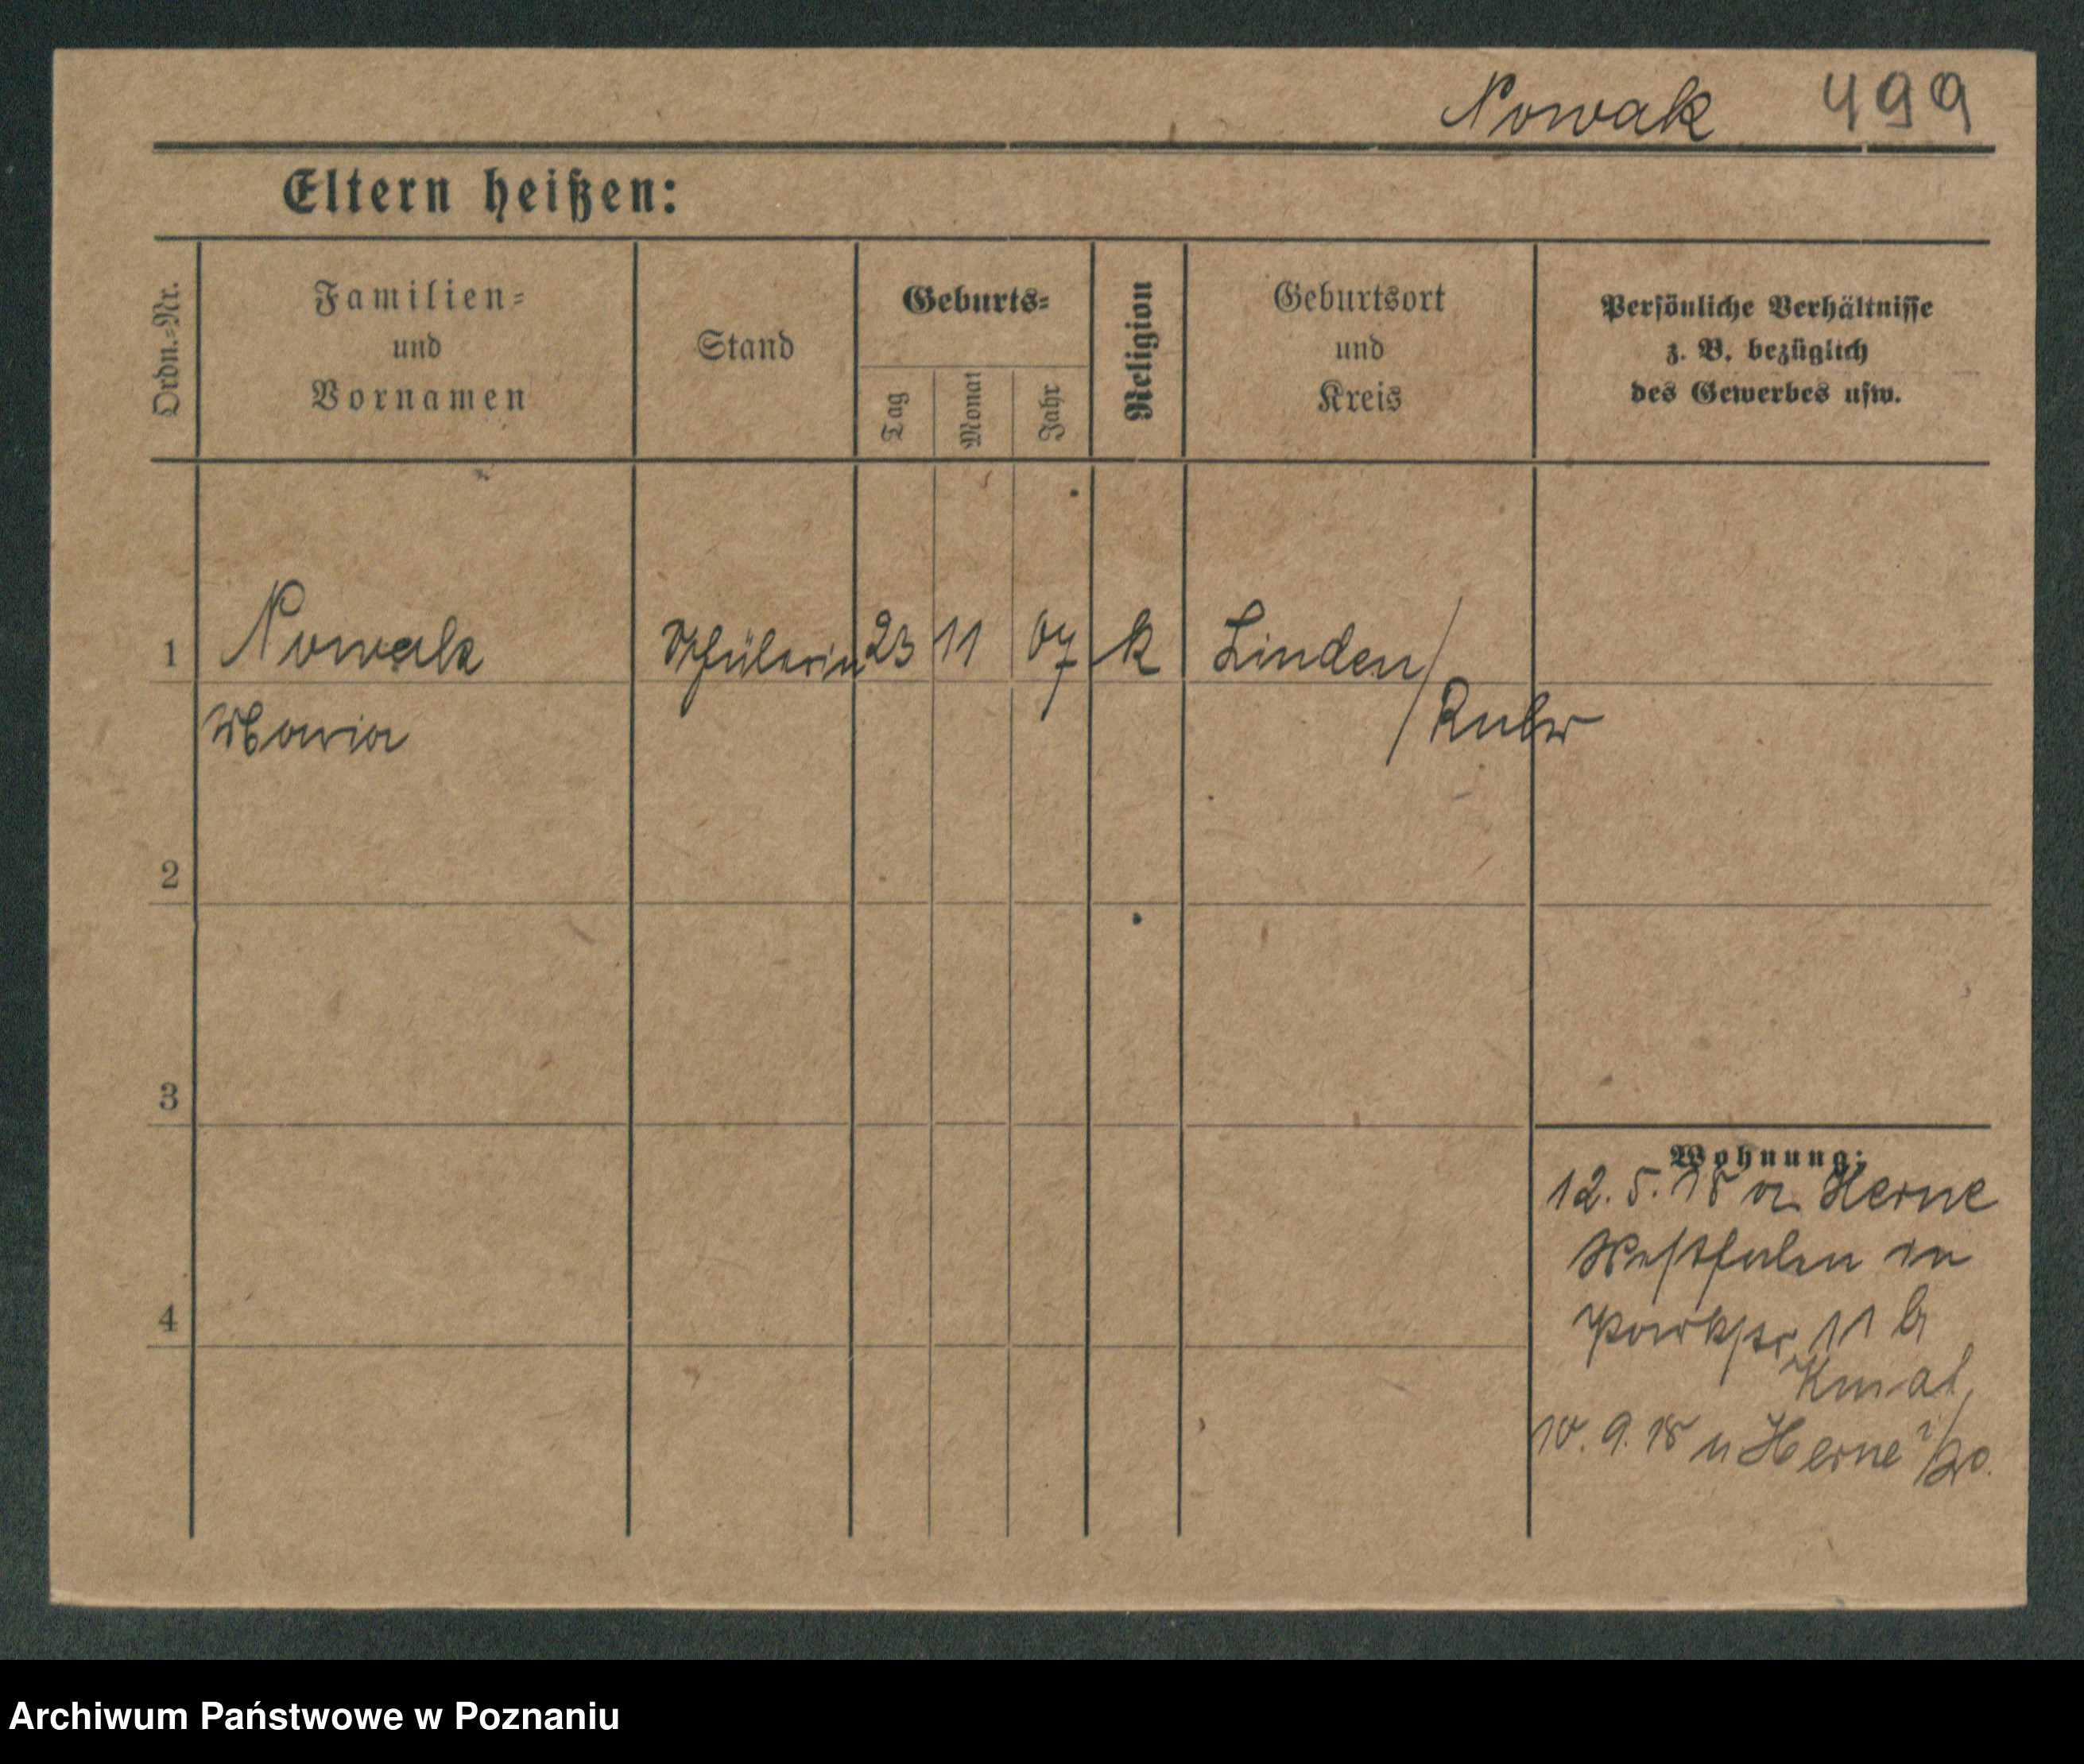 Nowak 499
Eltern heißen:
Ordn.-Nr.
Familien-
und
Vornamen
Stand
Geburts-
Tag
Monat
Jahr
Religion
Geburtsort
und
Kreis
Persönliche Verhältnisse
z. B. bezüglich
des Gewerbes usw.
1 Nowak Schülerin 23 11 07 k Linden/
Maria /Ruhr
2
3
4
Wohnung:
12.5.18 v. Herne
Westfalen in
Parkstr. 11 b
10.9.18 n Herne i/W.
Archiwum Państwowe w Poznaniu